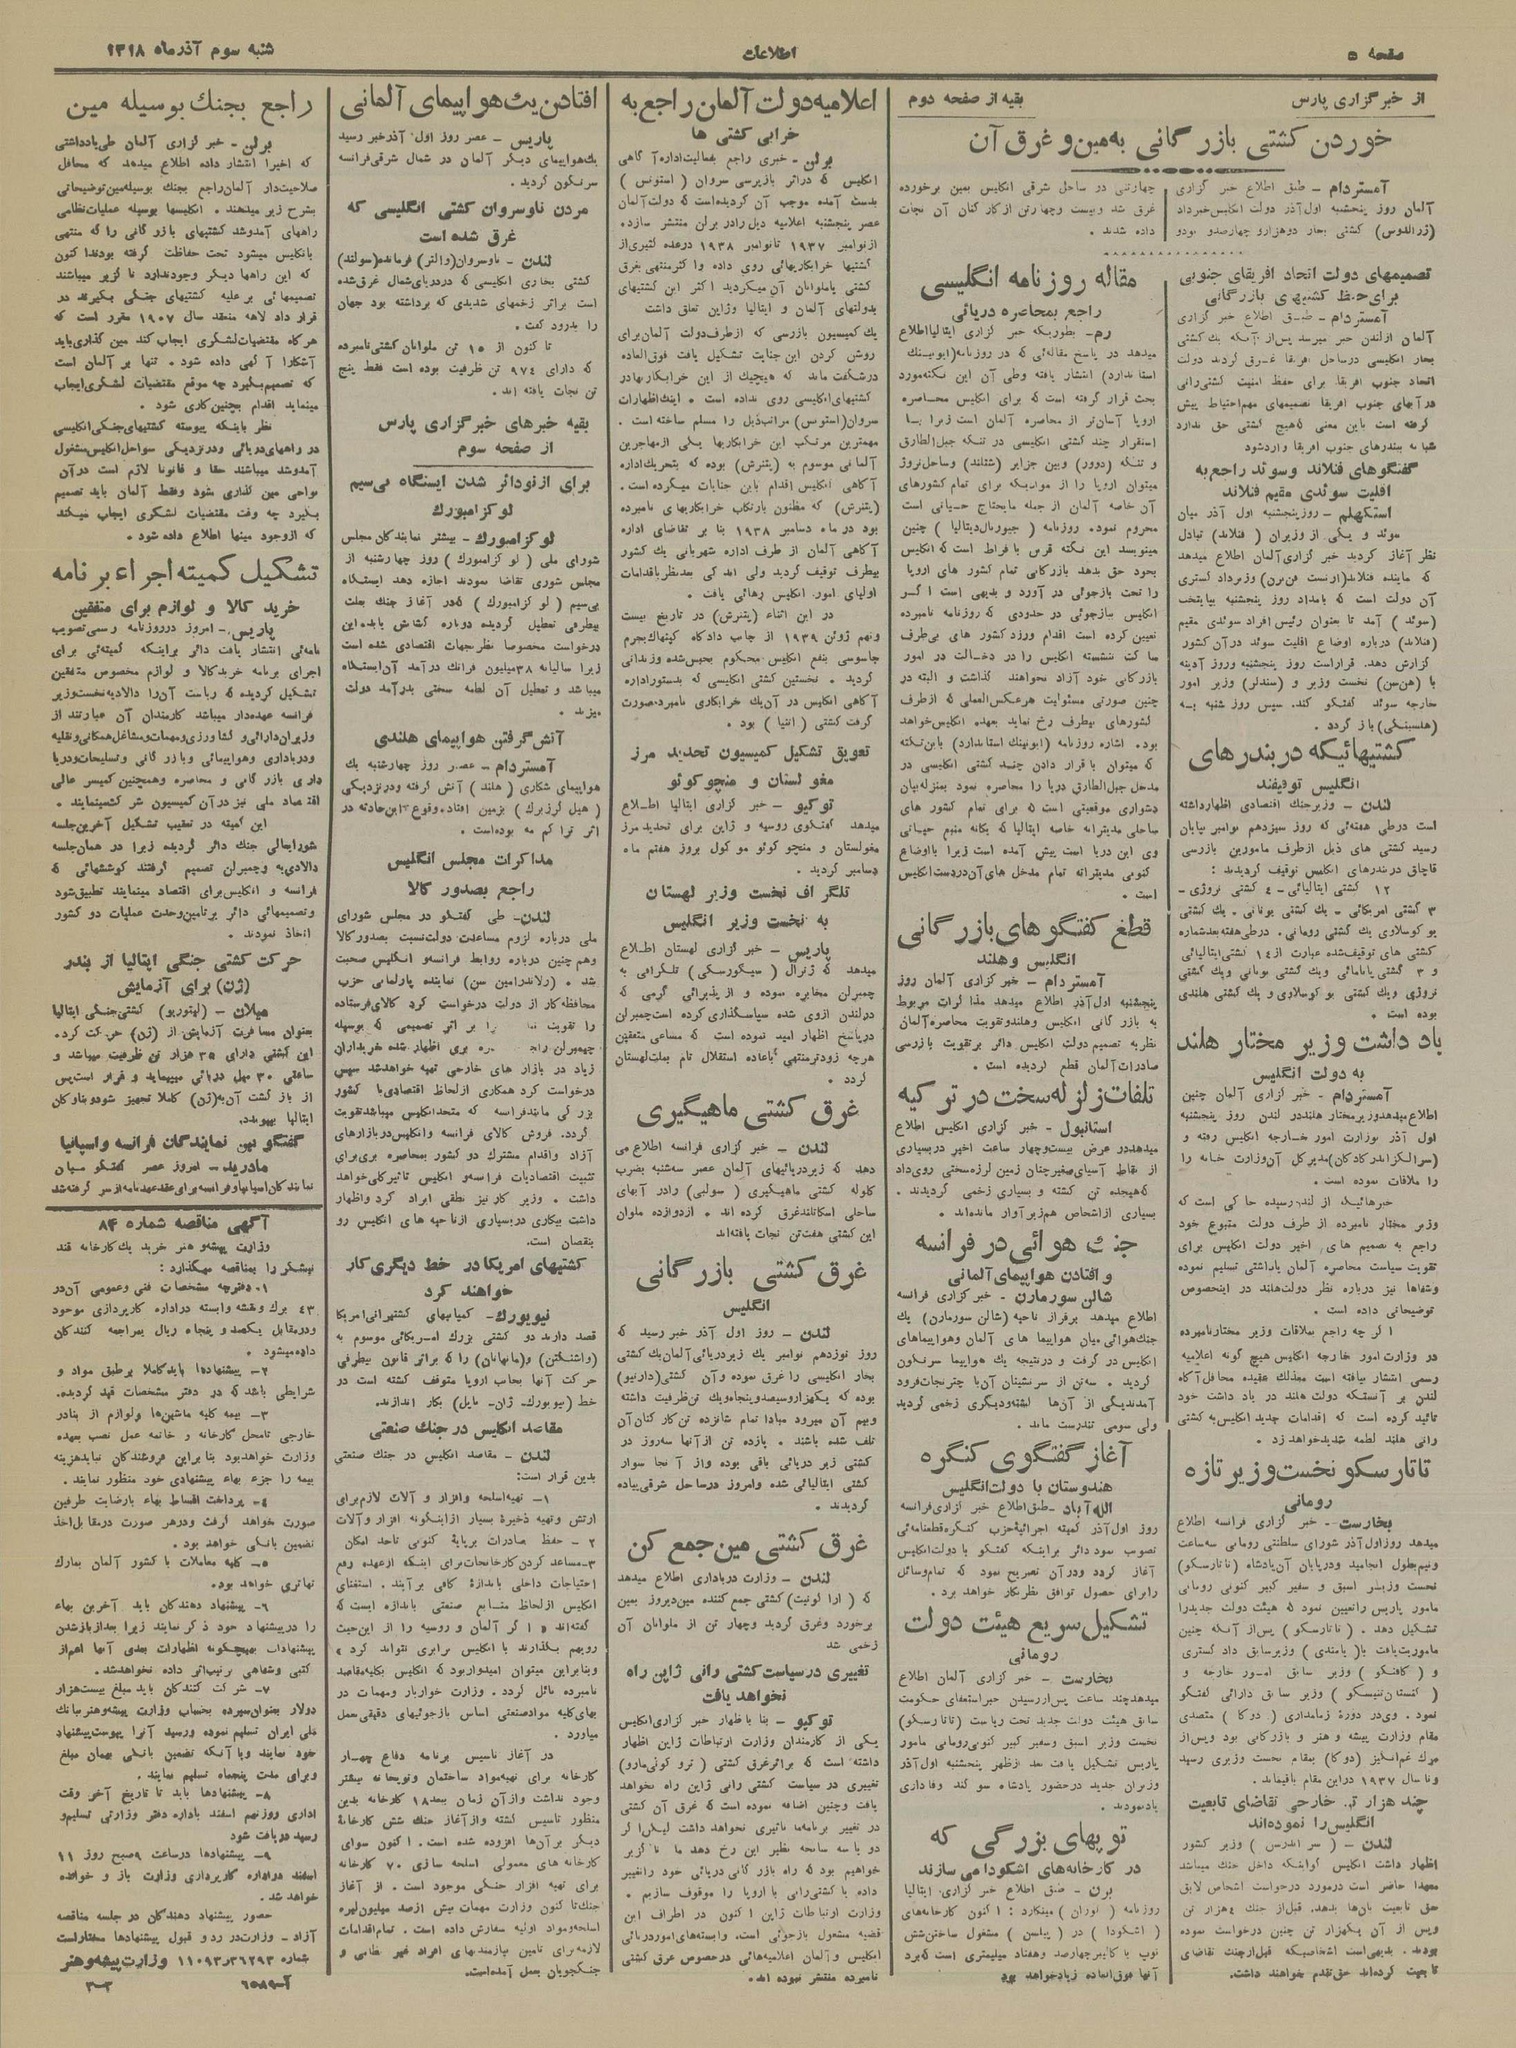 صفحه ۵
اطلاعات
شنبه سوم آذرماه ۱۳۱۸
از خبرگزاری پارس
بقیه از صفحه دوم
خوردن کشتی بازرگانی به مین و غرق آن
آمستردام - طبق اطلاع خبر گزاری
آلمان روز پنجشنبه اول آذر دولت انگلیس خبرداد
کشتی بخار دوهزارو چهارصدو نودو
چهارتنی در ساحل شرقی انگلیس بمین برخورده
غرق شد وبیست وچهارتن از کار کنان آن نجات
داده شدند .
تصمیمهای دولت اتحاد افریقای جنوبی
برای حفظ کشتیهای بازرگانی
آمستردام - طبق اطلاع خبر گزاری
آلمان ازلندن خبر میرسد پس از آنکه یك کشتی
بخار انگلیسی درساحل افریقا غرق گردید دولت
اتحاد جنوب افریقا برای حفظ امنیت کشتی رانی
در آبهای جنوب افریقا تصمیمهای مهم احتیاط پیش
گرفته است باین معنی که هیچ کشتی حق ندارد
شبانه ببندرهای جنوب افریقا واردشود
گفتگوهای فنلاند وسوئد راجع به
اقلیت سوئدی مقیم فنلاند
استکهلم - روزپنجشنبه اول آذر میان
سوئد و یکی از وزیران ( فنلاند) تبادل
نظر آغاز گردید خبر گزاری آلمان اطلاع میدهد
آن دولت است که بامداد روز پنجشنبه بپایتخت
(سوئد ) آمد تا بعنوان رئیس افراد سوئدی مقیم
(فنلاند) درباره اوضاع اقلیت سوئد در آن کشور
گزارش دهد. قراراست روز پنجشنبه وروز آدینه
با (هنسن) نخست وزیر و (سندلر) وزیر امور
خارجه سوئد گفتگو کند. سپس روز شنبه به
(هلسینکی) باز گردد .
کشتیهائیکه در بندرهای
انگلیس توقیفند
لندن - وزیرجنك اقتصادی اظهارداشته
است درطی هفته‌ئی که روز سیزدهم نوامبر بپایان
رسید کشتی های ذیل ازطرف مامورین بازرسی
قاچاق دربندرهای انگلیس توقیف گردیدند :
۱۲ کشتی ایتالیائی - ۴ کشتی نروژی -
۳ کشتی امریکائی - یك کشتی یونانی . یك کشتی
یو کوسلاوی یك کشتی رومانی . درطی هفته بعدشماره
کشتی های توقیف شده عبارت از۱۴ کشتی ایتالیائی
نروژی ویك کشتی یو کوسلاوی و یك کشتی هلندی
بوده است .
یاد داشت وزیر مختار هلند
به دولت انگلیس
آمستردام - خبر گزاری آلمان چنین
اطلاع میدهد وزیر مختار هلند در لندن روز پنجشنبه
اول آذر بوزارت امور خارجه انگلیس رفته و
(سرالکزاندر کادگان) مدیر کل آن وزارت خانه را
را ملاقات نموده است .
خبرهائیکه از لندن رسیده حاکی است که
وزیر مختار نامبرده از طرف دولت متبوع خود
راجع به تصمیم های اخیر دولت انگلیس برای
تقویت سیاست محاصره آلمان یاداشتی تسلیم نموده
وشفاها نیز درباره نظر دولت هلند در اینخصوص
توضیحاتی داده است .
اگر چه راجع بملاقات وزیر مختار نامبرده
در وزارت امور خارجه انگلیس هیچ گونه اعلامیه
رسمی انتشار نیافته است معذلك بعقیده محافل آگاه
لندن بر آنستکه دولت هلند در یاد داشت خود
تائید کرده است که اقدامات جدید انگلیس به کشتی
رانی هلند لطمه شدیدخواهد زد .
تاتارسکو نخست وزیر تازه
رومانی
بخارست - خبر گزاری فرانسه اطلاع
میدهد روزاول آذر شورای سلطنتی رومانی سه ساعت
ونیم بطول انجامید ودرپایان آن پادشاه (تاتارسکو)
نخست وزیر اسبق و سفیر کبیر کنونی رومانی
مامور پاریس راتعیین نمود که هیئت دولت جدیدرا
تشکیل دهد . ( تاتارسکو ) پس از آنکه چنین
وزیر سابق امور خارجه و
وزیر سابق دارائی گفتگو
نمود . وی در دورهٔ زمامداری ( دوکا ) متصدی
مقام وزارت پیشه و هنر و بازرگانی بود وپس از
مرك غم انگیز (دوکا) بمقام نخست وزیری رسید
وتا سال ۱۹۳۷ دراین مقام باقیماند .
چند هزار تن خارجی تقاضای تابعیت
انگلیس را نموده‌اند
وزیر کشور
اظهار داشت انگلیس گواینکه داخل جنك میباشد
معهذا حاضر است درمورد درخواست اشخاص لایق
حق تابعیت بآن ها بدهد. قبل از جنك ۴هزار تن
وپس از آن یکهزار تن چنین درخواست نموده
بودند . بدیهی است اشخاصیکه قبل از جنك تقاضای
تابعیت کرده‌اند حق تقدم خواهند داشت.
مقاله روزنامه انگلیسی
راجع بمحاصره دریائی
رم- بطوریکه خبر گزاری ایتالیا اطلاع
میدهد در پاسخ مقاله‌ئی که در روزنامه (ایونینك
استاندارد) انتشار یافته وطی آن این نکته مورد
بحث قرار گرفته است که برای انگلیس محاصره
اروپا آسان‌تر از محاصره آلمان است زیرا با
استقرار چند کشتی انگلیسی در تنگه جبل الطارق
و تنگه (دوور) وبین جزایر (شتلند) وساحل نروژ
میتوان اروپا را از موادیکه برای تمام کشورهای
آن خاصه آلمان از جمله مایحتاج حیاتی است
محروم نمود. روزنامه ( جیورنال دیتالیا ) چنین
مینویسد این نکته فرض بافراط است که انگلیس
بخود حق بدهد بازرگانی تمام کشور های اروپا
را تحت بازجوئی در آورد و بدیهی است اگر
انگلیس بازجوئی در حدودی که روزنامه نامبرده
تعیین کرده است اقدام ورزد کشور های بی‌طرف
ساکت ننشسته انگلیس را در دخالت در امور
بازرگانی خود آزاد نخواهند گذاشت و البته در
چنین صورتی مسئولیت هرعکس‌العملی که ازطرف
کشورهای بیطرف رخ نماید بعهده انگلیس خواهد
بود . اشاره روزنامه (ایونینك استاندارد) باین نکته
که میتوان با قرار دادن چند کشتی انگلیسی در
مدخل جبل الطارق دریا را محاصره نمود بمنزله بیان
دشواری موقعیتی است که برای تمام کشور های
ساحلی مدیترانه خاصه ایتالیا که یگانه منبع حیاتی
وی این دریا است پیش آمده است زیرا با اوضاع
کنونی مدیترانه تمام مدخل های آن دردست انگلیس
است .
قطع گفتگوهای بازرگانی
انگلیس و هلند
آمستردام - خبر گزاری آلمان روز
پنجشنبه اول آذر اطلاع میدهد مذاکرات مربوط
به بازر گانی انگلیس وهلند و تقویت محاصره آلمان
نظر به تصمیم دولت انگلیس دائر بر تقویت بازرسی
صادرات آلمان قطع گردیده است .
تلفات زلزله سخت در ترکیه
استانبول - خبر گزاری انگلیس اطلاع
میدهد در عرض بیست وچهار ساعت اخیر دربسیاری
از نقاط آسیای صغیر چنان زمین لرزه سختی روی داد
که هیجده تن کشته و بسیاری زخمی گردیدند .
بسیاری ازاشخاص هم زیر آوار مانده‌اند .
جنك هوائی در فرانسه
و افتادن هواپیمای آلمانی
شالن سورمارن - خبر گزاری فرانسه
اطلاع میدهد برفراز ناحیه (شالن سورمارن) یك
جنك هوائی میان هواپیما های آلمان وهواپیماهای
انگلیس در گرفت و درنتیجه یك هواپیما سرنگون
گردید . سه‌تن از سرنشینان آن با چترنجات فرود
آمدند یکی از آن‌ها کشته و دیگری زخمی گردید
ولی سومی تندرست ماند .
آغاز گفتگوی کنگره
هندوستان با دولت انگلیس
اله آباد - طبق اطلاع خبر گزاری فرانسه
روز اول آذر کمیته اجرائیهٔ حزب کنگره قطعنامه‌ئی
تصویب نمود دائر براینکه گفتگو با دولت انگلیس
آغاز گردد ودر آن تصریح نمود که تمام وسائل
رابرای حصول توافق نظر بکار خواهد برد .
تشکیل سریع هیئت دولت
رومانی
بخارست - خبر گزاری آلمان اطلاع
میدهد چند ساعت پس ازرسیدن خبر استعفای حکومت
سابق هیئت دولت جدید تحت ریاست (تاتارسکو)
نخست وزیر اسبق وسفیر کبیر کنونی رومانی مامور
پاریس تشکیل یافت بعد ازظهر پنجشنبه اول آذر
وزیران جدید درحضور پادشاه سو گند وفاداری
یادنمودند .
توپهای بزرگی که
در کارخانه‌های اشکودا می سازند
برن - طبق اطلاع خبر گزاری ایتالیا
اکنون کارخانه‌های
( اشکودا ) در ( پیلسن ) مشغول ساختن شش
توپ با کالیبر چهارصد وهفتاد میلیمتری است که برد
آنها فوق‌العاده زیاد خواهد بود
اعلامیه دولت آلمان راجع به
خرابی کشتی ها
برلن - خبری راجع بفعالیت اداره آگاهی
انگلیس که دراثر بازپرسی سروان ( استونس )
بدست آمده موجب آن گردیده‌است که دولت آلمان
عصر پنجشنبه اعلامیه ذیل رادر برلن منتشر سازد.
ازنوامبر ۱۹۳۷ تانوامبر ۱۹۳۸ درعده کثیری از
کشتیها خرابکاریهائی روی داده واکثرمنتهی بغرق
کشتی باملوانان آن میگردید اکثر این کشتیهای
بدولتهای آلمان و ایتالیا وژاپن تعلق داشت
یك کمیسیون بازرسی که ازطرف دولت آلمان برای
روشن کردن این جنایت تشکیل یافت فوق‌العاده
درشگفت ماند که هیچیك از این خرابکاریها در
کشتیهای انگلیسی روی نداده است . اینك اظهارات
سروان (استونس) مراتب ذیل را مسلم ساخته است .
مهمترین مرتکب این خرابکاریها یکی ازمهاجرین
آلمانی موسوم به (پتزش) بوده که بتحریك اداره
آگاهی انگلیس اقدام باین جنایات میکرده است.
که مظنون بارتکاب خرابکاریهای نامبرده
بود در ماه دسامبر ۱۹۳۸ بنا بر تقاضای اداره
آگاهی آلمان از طرف اداره شهربانی یك کشور
بیطرف توقیف گردید ولی اند کی بعد نظر باقدامات
اولیای امور انگلیس رهائی یافت .
در تاریخ بیست
ونهم ژوئن ۱۹۳۹ از جانب دادگاه کپنهاك بجرم
جاسوسی بنفع انگلیس محکوم بحبس شده وزندانی
گردید . نخستین کشتی انگلیسی که بدستور اداره
آگاهی انگلیس در آن یك خرابکاری نامبرده صورت
گرفت کشتی ( انتیا ) بود .
تعویق تشکیل کمیسیون تحدید مرز
مغولستان و منچوکوئو
توکیو - خبر گزاری ایتالیا اطلاع
میدهد گفتگوی روسیه و ژاپن برای تحدید مرز
مغولستان و منچو کوئو موکول بروز هفتم ماه
دسامبر گردید .
تلگراف نخست وزیر لهستان
به نخست وزیر انگلیس
پاریس - خبر گزاری لهستان اطلاع
میدهد که ژنرال ( سیکورسکی ) تلگرافی به
چمبرلن مخابره نموده و از پذیرائی گرمی که
درلندن ازوی شده سپاسگذاری کرده است چمبرلن
درپاسخ اظهار امید نموده است که مساعی متفقین
هرچه زودتر منتهی باعاده استقلال تام بملت لهستان
گردد .
غرق کشتی ماهیگیری
لندن - خبر گزاری فرانسه اطلاع می
دهد که زیردریائیهای آلمان عصر سه‌شنبه بضرب
گلوله کشتی ماهیگیری ( سولبی ) رادر آبهای
ساحلی اسکاتلند غرق کرده اند . ازدوازده ملوان
این کشتی هفت تن نجات یافته‌اند
غرق کشتی بازرگانی
انگلیس
لندن - روز اول آذر خبر رسید که
روز نوزدهم نوامبر یك زیردریائی آلمان یك کشتی
بخار انگلیسی را غرق نموده وآن کشتی (دارینو)
بوده که یکهزاروسیصدو پنجاه ویك تن ظرفیت داشته
وبیم آن میرود مبادا تمام شانزده تن کار کنان آن
تلف شده باشند . یازده تن ازآنها سه‌روز در
کشتی زیر دریائی باقی بوده واز آنجا سوار
کشتی ایتالیائی شده وامروز درساحل شرقی پیاده
گردیدند .
غرق کشتی مین جمع کن
لندن - وزارت دریاداری اطلاع میدهد
که ( اراگونیت) کشتی جمع کننده مین دیروز بمین
برخورد وغرق گردید وچهار تن از ملوانان آن
زخمی شد
تغییری درسیاست کشتی رانی ژاپن راه
نخواهد یافت
توکیو - بنا باظهار خبر گزاری انگلیس
یکی از کارمندان وزارت ارتباطات ژاپن اظهار
داشته است که براثر غرق کشتی ( ترو کونی مارو)
تغییری در سیاست کشتی رانی ژاپن راه نخواهد
یافت وچنین اضافه نموده است که غرق آن کشتی
در تغییر برنامه‌ما تاثیری نخواهد داشت لیکن اگر
دو یا سه سانحه نظیر این رخ دهد ما ناگزیر
خواهیم بود که راه بازر گانی دریائی خود راتغییر
داده یا کشتی‌رانی با اروپا را موقوف سازیم .
وزارت ارتباطات ژاپن اکنون در اطراف این
قضیه مشغول بازجوئی است. وابسته‌های امور دریائی
انگلیس و آلمان اعلامیه‌هائی درخصوص غرق کشتی
نامبرده منتشر نموده اند.
افتادن یك هواپیمای آلمانی
پاریس - عصر روز اول آذر خبر رسید
یك هواپیمای دیگر آلمان در شمال شرقی فرانسه
سرنگون گردید .
مردن ناوسروان کشتی انگلیسی که
غرق شده است
لندن - ناوسروان (والتر) فرمانده (سولند)
کشتی بخاری انگلیسی که دردریای شمال غرق شده
است براثر زخمهای شدیدی که برداشته بود جهان
را بدرود گفت .
تا کنون از ۱۵ تن ملوانان کشتی نامبرده
که دارای ۹۷۴ تن ظرفیت بوده است فقط پنج
تن نجات یافته اند.
بقیه خبرهای خبرگزاری پارس
از صفحه سوم
برای ازنودائر شدن ایستگاه بی‌سیم
لوکزامبورك
لوکزامبورك - بیشتر نمایندگان مجلس
شورای ملی ( لو گزامبورك ) روز چهارشنبه از
مجلس شوری تقاضا نمودند اجازه دهد ایستگاه
بی‌سیم ( لو کزامبورك ) که‌در آغاز جنك بعلت
بیطرفی تعطیل گردیده دوباره گشایش یابد این
درخواست مخصوصا نظر بجهات اقتصادی شده است
زیرا سالیانه ۳۸میلیون فرانك درآمد آن ایستگاه
میباشد و تعطیل آن لطمه سختی بدرآمد دولت
میزند .
آتش گرفتن هواپیمای هلندی
آمستردام - عصر روز چهارشنبه یك
هواپیمای شکاری ( هلند ) آتش گرفته ودرنزدیکی
( هیل گرزبرك ) بزمین افتاد. وقوع این حادثه در
اثر تراکم مه بوده است .
مذاکرات مجلس انگلیس
راجع بصدور کالا
لندن- طی گفتگو در مجلس شورای
ملی درباره لزوم مساعدت دولت نسبت بصدور کالا
وهم چنین درباره روابط فرانسه و انگلیس صحبت
شد . (رلاندرامین سن) نماینده پارلمانی حزب
محافظه‌کار از دولت درخواست کرد کالای فرستاده
را تقویت
زیاد در بازار های خارجی تهیه خواهد شد سپس
درخواست کرد همکاری ازلحاظ اقتصادی با کشور
بزرگی مانند فرانسه که متحد انگلیس میباشد تقویت
گردد. فروش کالای فرانسه وانگلیس در بازارهای
آزاد واقدام مشترك دو کشور بمحاصره بری برای
تثبیت اقتصادیات فرانسه و انگلیس تاثیر کلی خواهد
داشت . وزیر کار نیز نطقی ایراد کرد واظهار
داشت بیکاری دربسیاری ازناحیه های انگلیس رو
بنقصان است.
کشتیهای امریکا در خط دیگری کار
خواهند کرد
نیویورك- کمپانیهای کشتیرانی امریکا
قصد دارند دو کشتی بزرك امریکائی موسوم به
(واشنگتن) و(مانهاتان) را که براثر قانون بیطرفی
حرکت آنها بجانب اروپا متوقف گشته است در
خط (نیویورك- ژان- بایل) بکار اندازند.
مقاصد انگلیس در جنك صنعتی
لندن - مقاصد انگلیس در جنك صنعتی
بدین قرار است:
۱- تهیه اسلحه وافزار و آلات لازم برای
ارتش وتهیه ذخیرهٔ بسیار ازاینگونه افزار وآلات
۲- حفظ صادرات برپایهٔ کنونی تاحد امکان
۳-مساعد کردن کارخانجات برای اینکه ازعهده رفع
احتیاجات داخلی باندازهٔ کافی بر آیند . استغنای
انگلیس ازلحاظ منابع صنعتی باندازه ایست که
گفته‌اند « اگر آلمان و روسیه را از این‌حیث
رویهم بگذارند با انگلیس برابری نتواند کرد »
وبنابراین میتوان امیدوار بود که انگلیس بکلیه مقاصد
نامبرده نائل گردد . وزارت خواربار ومهمات در
بهای کلیه موادصنعتی اساس بازجوئیهای دقیقی بعمل
میاورد .
در آغاز تاسیس برنامه دفاع چهار
کارخانه برای تهیه مواد ساختمان وتوپخانه بیشتر
وجود نداشت واز آن زمان ببعد ۱۸ کارخانه بدین
منظور تاسیس گشته وازآغاز جنك شش کارخانهٔ
دیگر بر آن‌ها افزوده شده است . اکنون سوای
کارخانه های معمولی اسلحه سازی ۷۰ کارخانه
برای تهیه افزار جنگی موجود است . از آغاز
جنك تا کنون وزارت مهمات بیش ازصد میلیون لیره
اسلحه ومواد اولیه سفارش داده است . تمام اقدامات
لازمه برای تامین نیازمندیهای افراد غیر نظامی و
جنگجویان بعمل آمده‌است.
راجع بجنك بوسیله مین
برلن - خبر گزاری آلمان طی یادداشتی
که اخیرا انتشار داده اطلاع میدهد که محافل
صلاحیت‌دار آلمان راجع بجنك بوسیله‌مین توضیحاتی
بشرح زیر میدهند . انگلیسها بوسیله عملیات نظامی
راههای آمدوشد کشتیهای بازرگانی را که منتهی
بانگلیس میشود تحت حفاظت گرفته بودند اکنون
که این راهها دیگر وجود ندارد ناگزیر میباشند
تصمیماتی برعلیه کشتیهای جنگی بگیرند در
قرار داد لاهه منعقد سال ۱۹۰۷ مقرر است که
هرگاه مقتضیات لشگری ایجاب کند مین گذاری باید
آشکارا آگهی داده شود . تنها بر آلمان است
که تصمیم بگیرد چه موقع مقتضیات لشگری ایجاب
مینماید اقدام بچنین کاری شود .
نظر باینکه پیوسته کشتیهای جنگی انگلیسی
در راههای دریائی ودرنزدیکی سواحل انگلیس مشغول
آمدوشد میباشند حقا و قانونا لازم است در آن
نواحی مین گذاری شود وفقط آلمان باید تصمیم
بگیرد چه وقت مقتضیات لشگری ایجاب میکند
که ازوجود مینها اطلاع داده شود .
تشکیل کمیته اجراء برنامه
خرید کالا و لوازم برای متفقین
پاریس- امروز درروزنامه رسمی تصویب
نامه‌ئی انتشار یافت دائر براینکه کمیته‌ئی برای
اجرای برنامه خریدکالا و لوازم مخصوص متفقین
تشکیل گردیده که ریاست آن را دالادیه نخست وزیر
فرانسه عهده‌دار میباشد کارمندان آن عبارتند از
وزیران دارائی و کشاورزی ومهمات ومشاغل همگانی ونقلیه
ودریاداری وهواپیمائی وبازرگانی وتسلیحات ودریا
داری بازرگانی و محاصره وهمچنین کمیسر عالی
اقتصاد ملی نیز درآن کمیسیون شرکت مینمایند .
این کمیته در تعقیب تشکیل آخرین جلسه
شورایعالی جنك دائر گردیده زیرا در همان جلسه
دالادی‌یه وچمبرلن تصمیم گرفتند کوششهائی که
فرانسه و انگلیس برای اقتصاد مینمایند تطبیق شود
وتصمیمهائی دائر برتامین وحدت عملیات دو کشور
اتخاذ نمودند .
حرکت کشتی جنگی ایتالیا از بندر
(ژن) برای آزمایش
میلان - (لیتوریو) کشتی جنگی ایتالیا
بعنوان مسافرت آزمایش از (ژن) حرکت کرد.
این کشتی دارای ۳۵ هزار تن ظرفیت میباشد و
ساعتی ۳۰ میل دریائی میپیماید و قرار است پس
از باز گشت آن به(ژن) کاملا تجهیز شود وبناوگان
ایتالیا بپیوندد.
گفتگو بین نمایندگان فرانسه و اسپانیا
مادرید- امروز عصر گفتگو میان
نمایندگان اسپانیا وفرانسه برای عقد عهدنامه از سر گرفته شد
آگهی مناقصه شماره ۸۴
وزارت پیشه و هنر خرید یك کارخانه قند
نیشکر را بمناقصه میگذارد :
۱- دفترچه مشخصات فنی وعمومی آن در
۴۳ برك ونقشه وابسته دراداره کارپردازی موجود
ودر مقابل یکصد و پنجاه ریال بمراجعه کنندگان
داده میشود .
۲- پیشنهادها باید کاملا برطبق مواد و
شرایطی باشد که در دفتر مشخصات قید گردیده.
۳- بیمه کلیه ماشین‌ها ولوازم از بنادر
خارجی تامحل کارخانه و خاتمه عمل نصب بعهده
وزارت خواهد بود بنا براین فروشندگان نباید هزینه
بیمه را جزء بهاء پیشنهادی خود منظور نمایند .
۴- پرداخت اقساط بهاء بارضایت طرفین
صورت خواهد گرفت ودرهر صورت درمقابل اخذ
تضمین بانکی خواهد بود .
۵- کلیه معاملات با کشور آلمان بمارك
تهاتری خواهد بود.
۶- پیشنهاد دهندگان باید آخرین بهاء
را درپیشنهاد خود ذکر نمایند زیرا بعد ازباز شدن
پیشنهادات بهیچگونه اظهارات بعدی آنها اعم از
کتبی وشفاهی ترتیب اثر داده نخواهد شد.
۷- شرکت کنندگان باید مبلغ بیست هزار
دولار بعنوان سپرده بحساب وزارت پیشه وهنر ببانك
ملی ایران تسلیم نموده ورسید آنرا پیوست پیشنهاد
خود نمایند ویا آنکه تضمین بانکی بهمان مبلغ
وبرای مدت پنجماه تسلیم نمایند .
۸- پیشنهادها باید تا تاریخ آخر وقت
اداری روزنهم اسفند باداره دفتر وزارتی تسلیم و
رسید دریافت شود
۹- پیشنهادها درساعت ۹صبح روز ۱۱
اسفند دراداره کارپردازی وزارت باز و خوانده
خواهد شد.
حضور پیشنهاد دهندگان در جلسه مناقصه
آزاد - وزارت در رد و قبول پیشنهادها مختار است
شماره ۱۱۰۹۳ر۳۶۲۹۳ وزارت پیشه و هنر
آ-۶۵۸۹
۳-۳